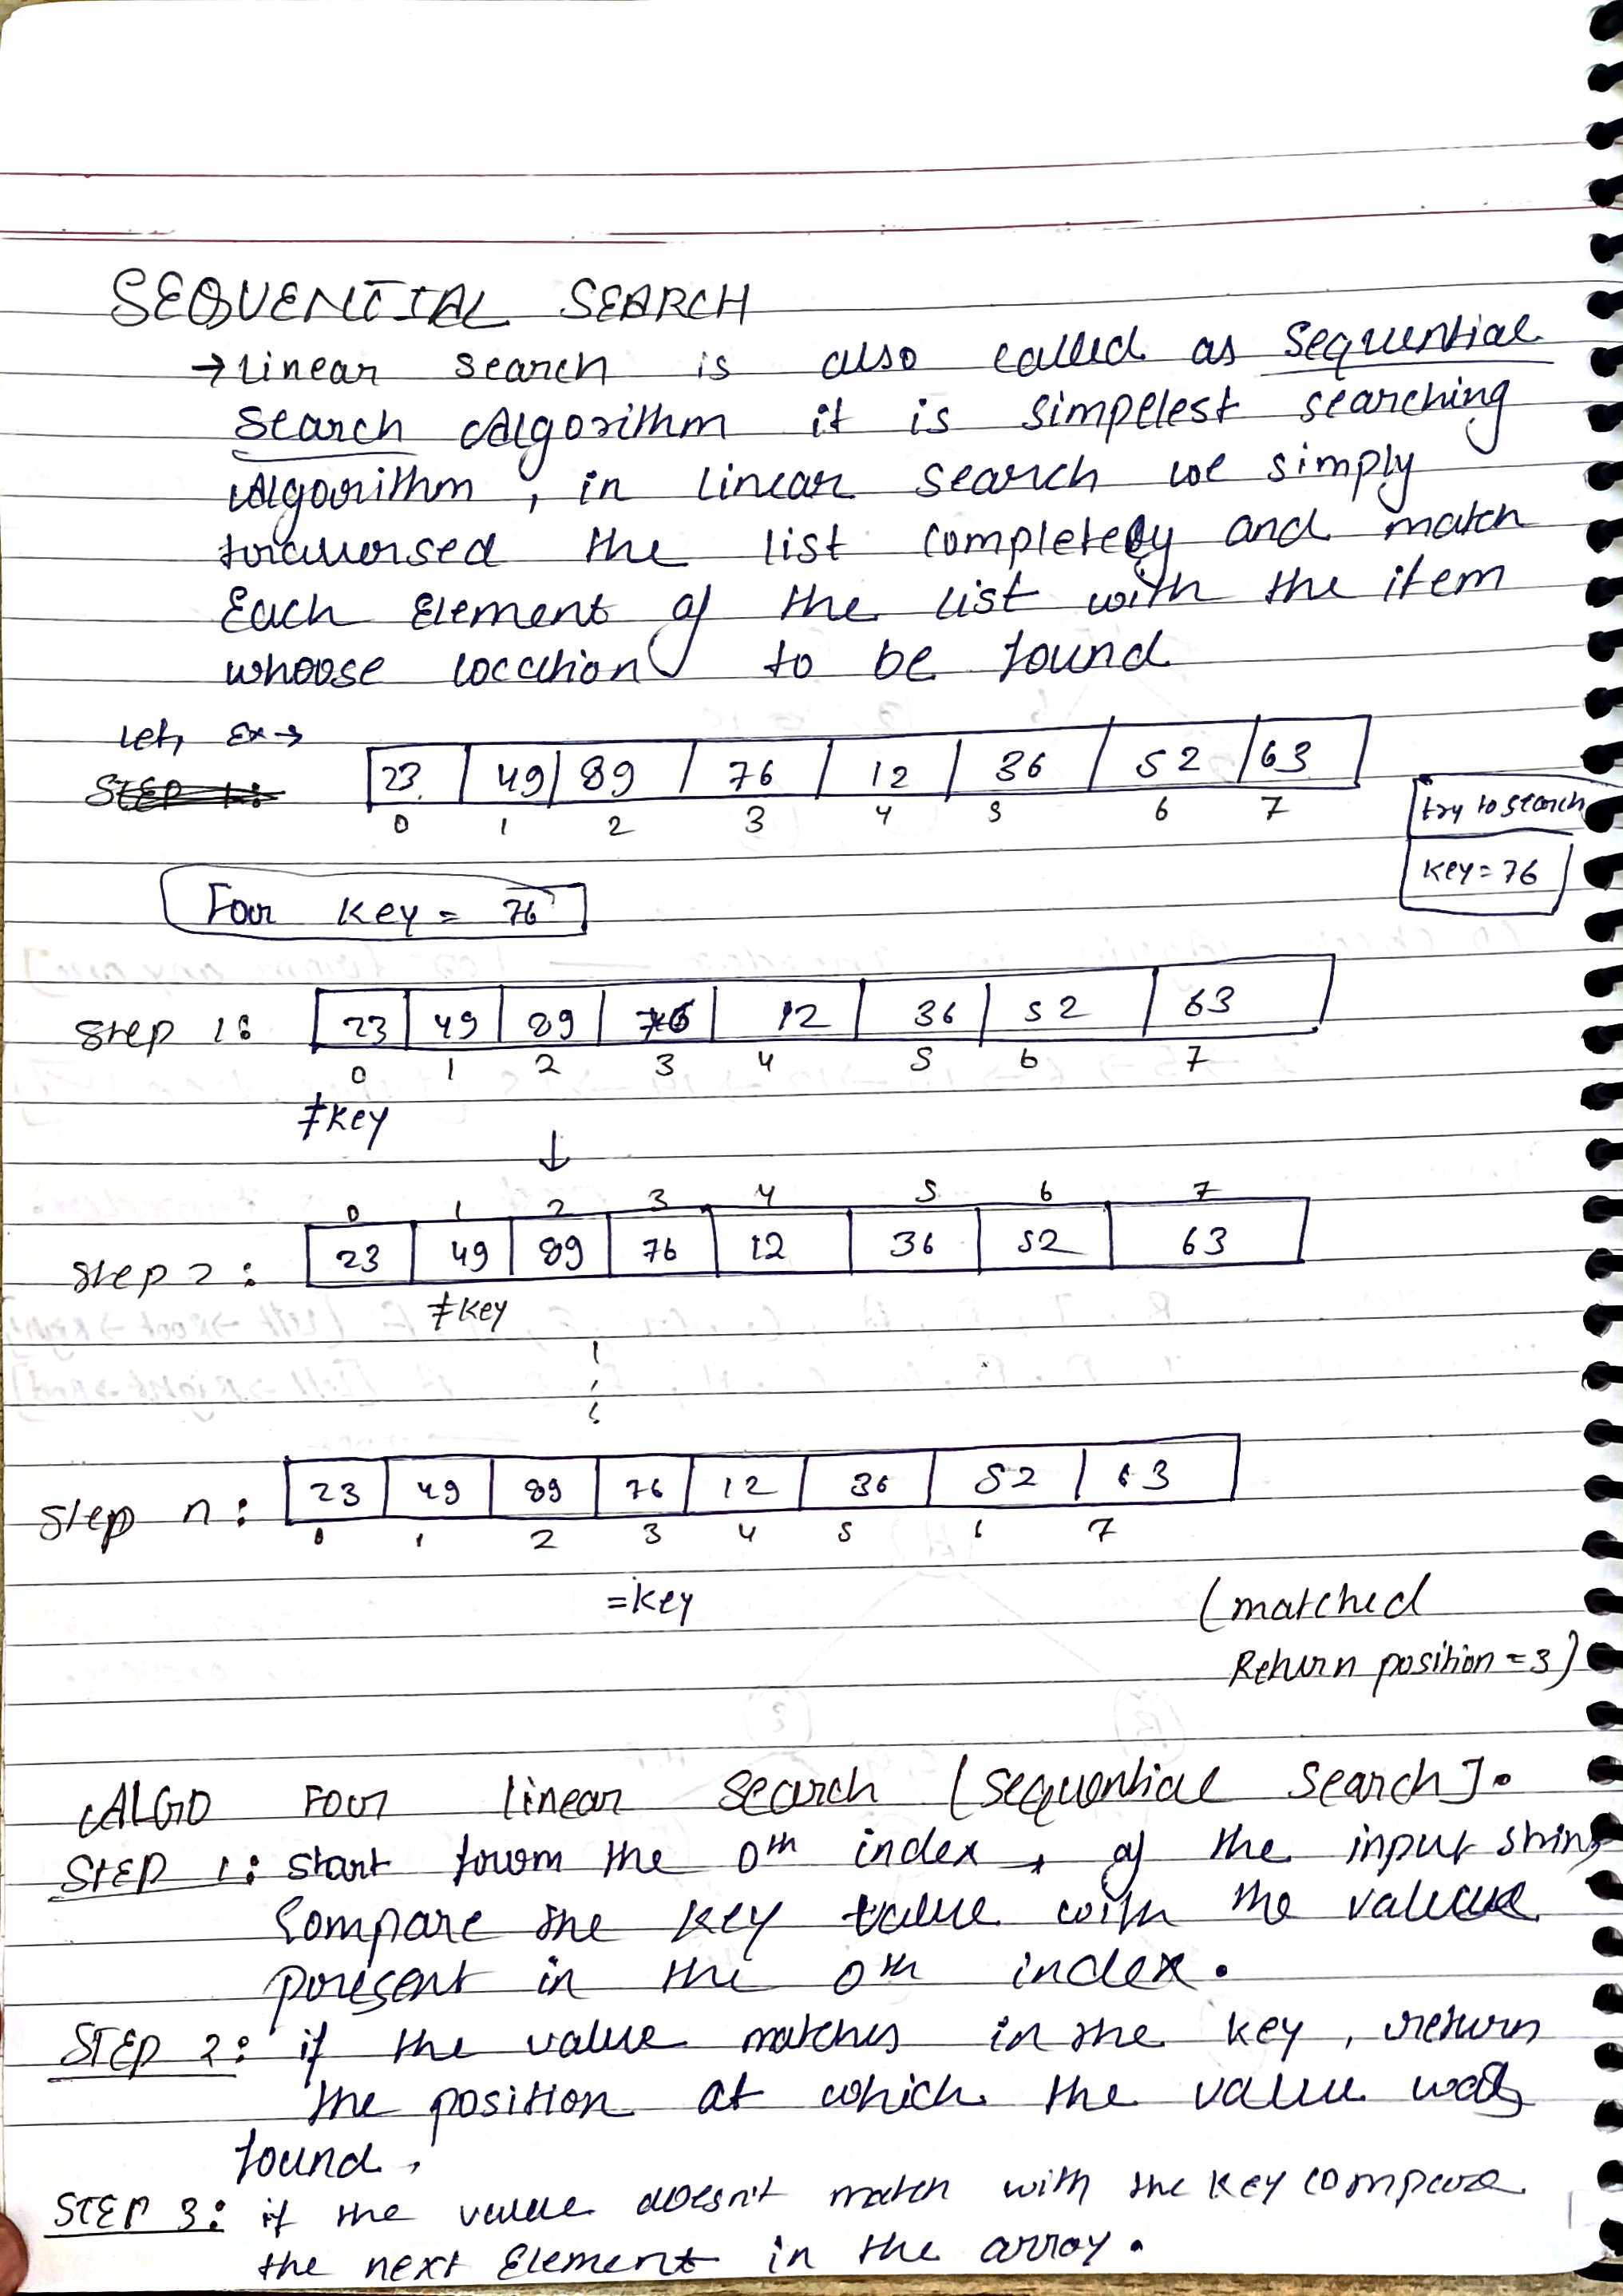 SEQUENTIAL SEARCH
→ Linear search is also called as Sequential
Search Algorithm it is simpelest searching
Algorithm, in linear search we simply
traversed the list completely and match
Each Element of the list with the item
whoose location to be found
Let, Ex →
STEP 1:
23 49 89 76 12 36 52 63
0 1 2 3 4 5 6 7
try to search
key = 76
For key = 76
Step 1: 23 49 89 76 12 36 52 63
0 1 2 3 4 5 6 7
≠key
↓
0 1 2 3 4 5 6 7
Step 2: 23 49 89 76 12 36 52 63
≠key
Step n: 23 49 89 76 12 36 52 63
0 1 2 3 4 5 6 7
=key
(matched
Return position = 3)
ALGO For linear search [sequential search].
STEP 1: Start from the 0th index, of the input string
Compare the key value with the value
present in the 0th index.
STEP 2: if the value matches in the key, return
the position at which the value was
found.
STEP 3: if the value doesn't match with the key compare
the next Element in the array.